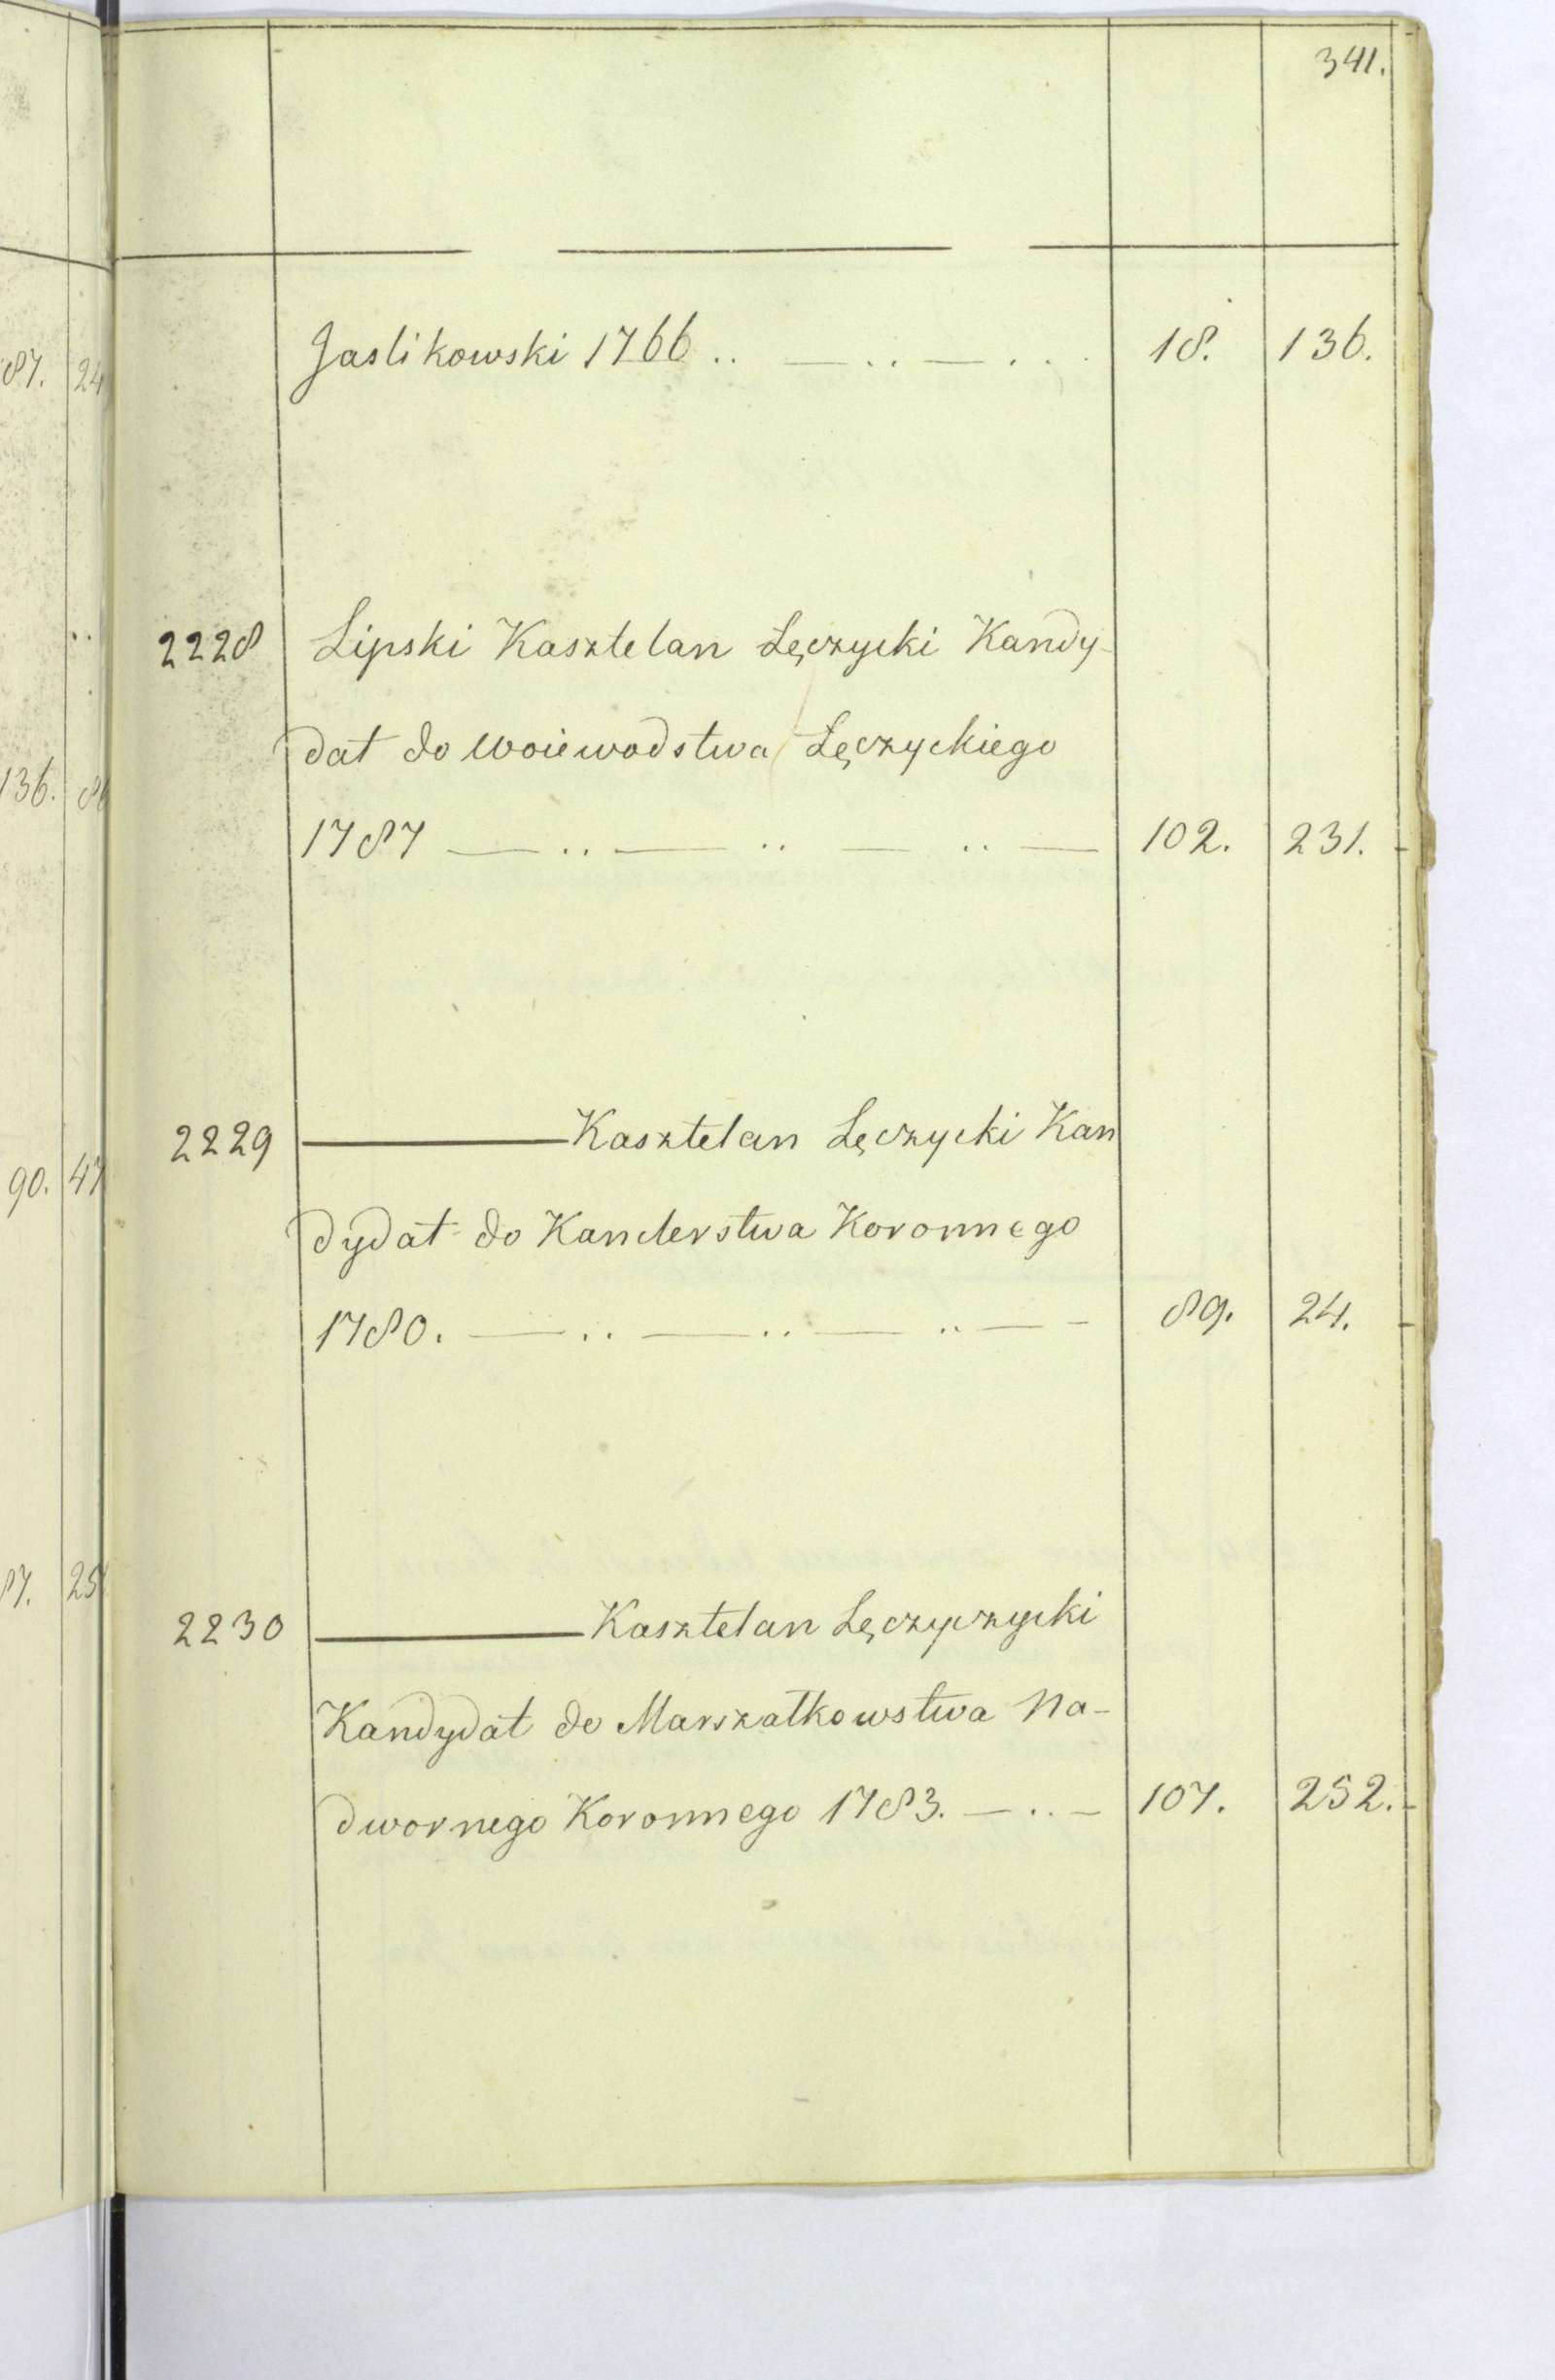 341.
Jaslikowski 1766 .. — .. — . . . 18. 136.
2228 Lipski Kasztelan Łęczycki Kandy-
dat do Woiewodstwa Łęczyckiego
1787 — .. — .. — .. — 102. 231.
2229 ——— Kasztelan Łęczycki Kan
dydat do Kanclerstwa Koronnego
1780. — .. — .. — .. — - 89. 24.
2230 ——— Kasztelan Łęczyczycki
Kandydat do Marszałkowstwa Na-
dwornego Koronnego 1783. — .. — 107. 252.
87.
136.
90. 47